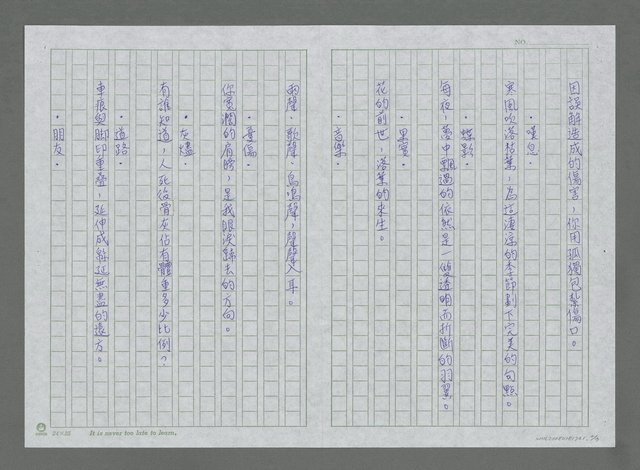 NO.
因誤解造成的傷害，你用孤獨包紮傷口。
・嘆息・
寒風吹落枯葉，為這淒涼的季節劃下完美的句點。
・蝶歌・
每夜，夢中飄過的依然是一雙透明而折斷的羽翼。
・果實・
花的前世，落葉的來生。
・音樂・
雨聲，歌聲，鳥鳴聲，聲聲入耳。
・憂傷・
你寬闊的肩膀，是我眼淚歸去的方向。
・灰燼・
有誰知道，人死後骨灰佔有體重多少比例？
・道路・
車痕與腳印重疊，延伸成綿延無盡的遠方。
・朋友・
24×25 It is never too late to learn.